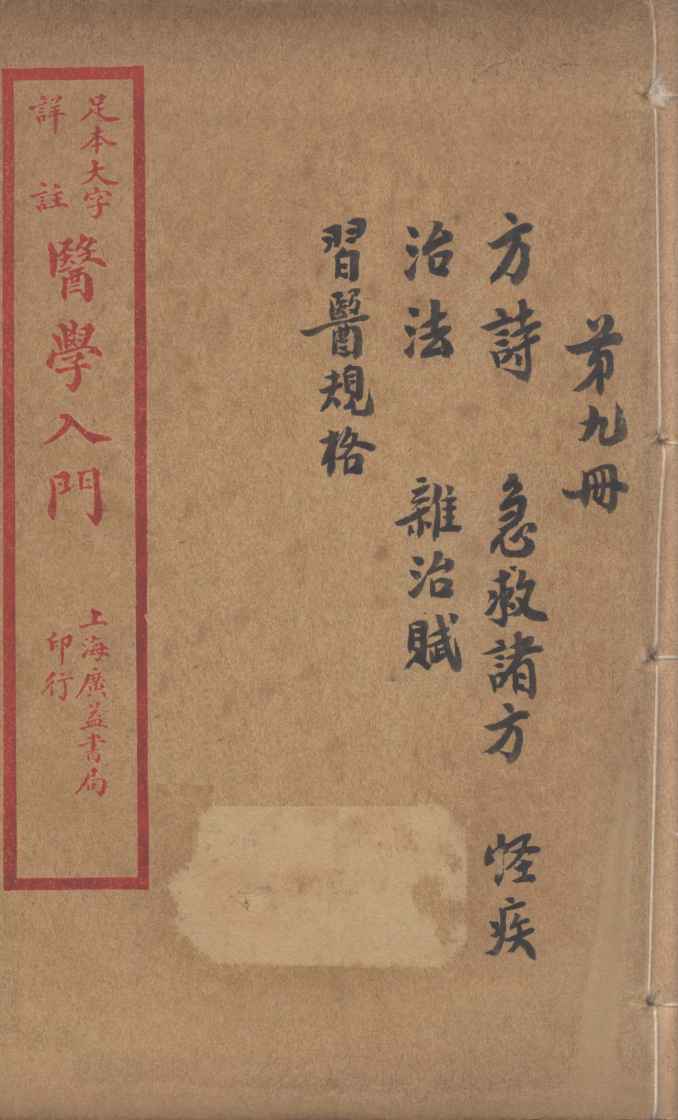 第九冊
方詩 急救諸方 怪疾
治法 雜治賦
習醫規格
足本大字
詳註
醫學入門
上海廣益書局
印行